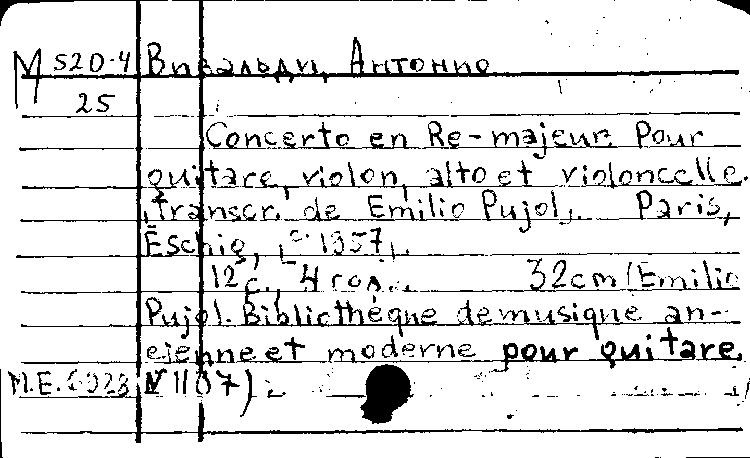 М 520-4 Вивальди, Антонио
25
Concerto en Re-majeur. Pour
guitare, violon, alto et violoncelle.
Transcr. de Emilio Pujol. Paris,
Eschig, [c. 1957].
12 с., 4 гол. 32cm (Emilio
Pujol. Bibliothéque de musique an-
cienne et moderne pour guitare.
M.E. N 1107).